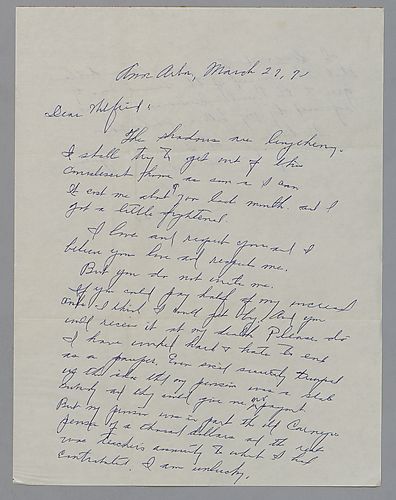 Ann Arbor, March 27, 9
Dear Wilfrid:
The shadows are lengthening.
I shall try to get out of this
convalescent home as soon as I can
It cost me about 700 last month. and I
got a little frightened.
I love and respect you and I
believe you love and respect me.
But you do not write me.
If you could pay half of my increased
I think I could get by. And you
will receive it at my death Please do
I have worked hard & hate to end
as a pauper. Even social security
up the idea that my pension was a
and they would give me payment
But my pension was in part the old Carnegie
pension of a thousand dollars and the rest
was teachers annuity to what I had
contributed. I am unlucky.